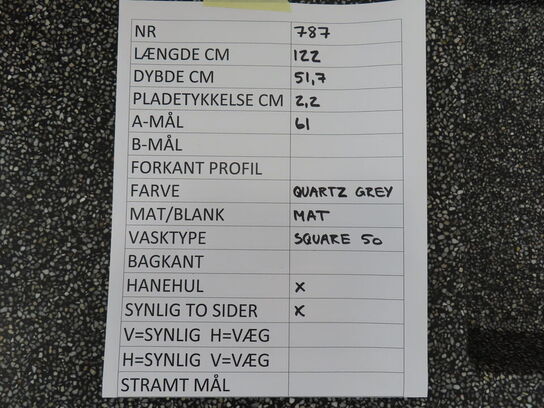 NR 787
LÆNGDE CM 122
DYBDE CM 51,7
PLADETYKKELSE CM 2,2
A-MÅL 61
B-MÅL
FORKANT PROFIL
FARVE QUARTZ GREY
MAT/BLANK MAT
VASKTYPE SQUARE 50
BAGKANT
HANEHUL X
SYNLIG TO SIDER X
V=SYNLIG H=VÆG
H=SYNLIG V=VÆG
STRAMT MÅL